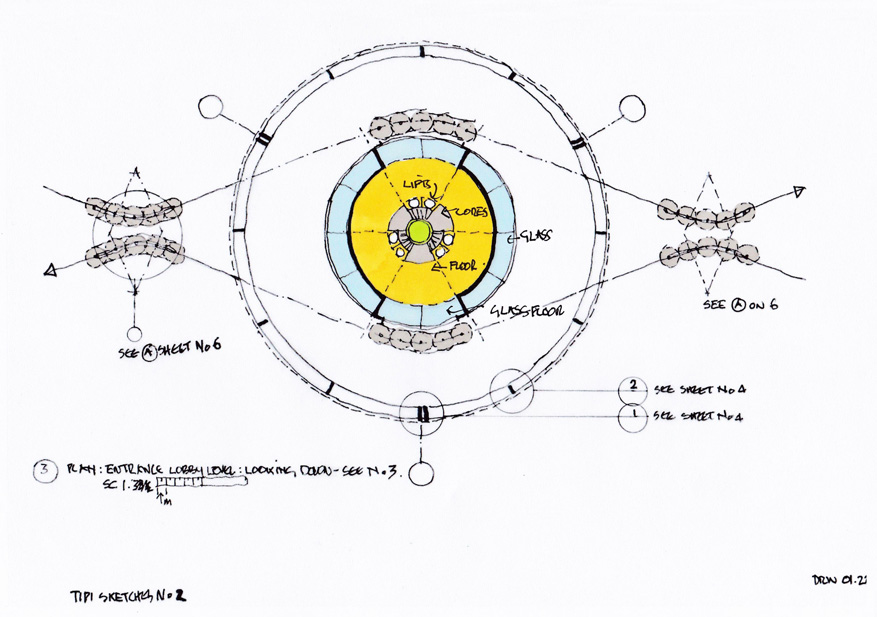 LIFTS
CORES
GLASS
FLOOR
GLASS FLOOR
SEE A ON 6
SEE A SHEET No 6
2 SEE SHEET No 4
1 SEE SHEET No 4
3 PLAN: ENTRANCE LOBBY LEVEL: LOOKING DOWN - SEE No 3.
SC 1.
m
TIPI SKETCHES No 2
DRW 01.2